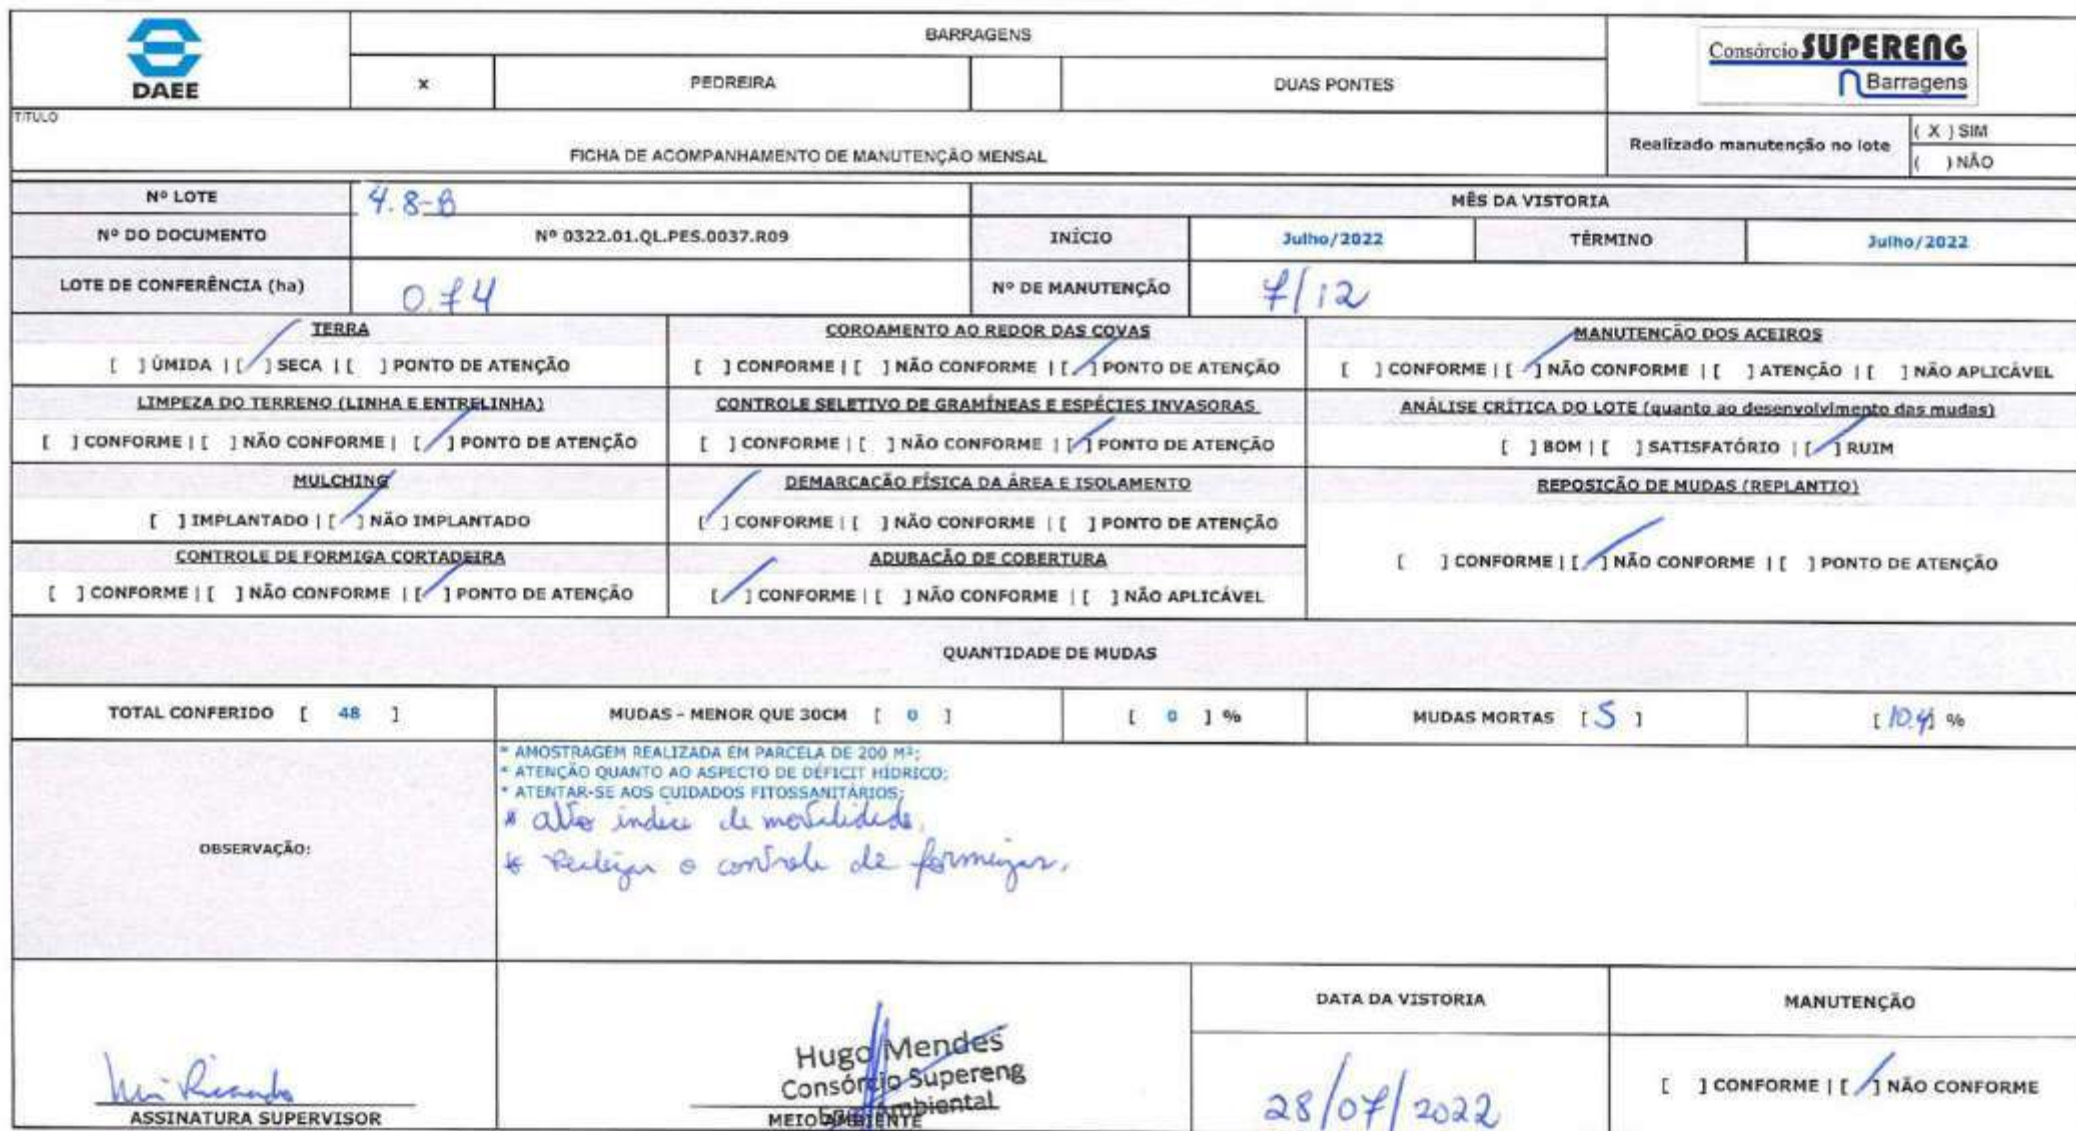 DAEE
BARRAGENS
x PEDREIRA DUAS PONTES
Consórcio SUPERENG
Barragens
TÍTULO
FICHA DE ACOMPANHAMENTO DE MANUTENÇÃO MENSAL
Realizado manutenção no lote
( X ) SIM
( ) NÃO
Nº LOTE 4.8-B
MÊS DA VISTORIA
Nº DO DOCUMENTO Nº 0322.01.QL.PES.0037.R09 INÍCIO Julho/2022 TÉRMINO Julho/2022
LOTE DE CONFERÊNCIA (ha) 0.74 Nº DE MANUTENÇÃO 7/12
TERRA
[ ] ÚMIDA | [/] SECA | [ ] PONTO DE ATENÇÃO
COROAMENTO AO REDOR DAS COVAS
[ ] CONFORME | [ ] NÃO CONFORME | [/] PONTO DE ATENÇÃO
MANUTENÇÃO DOS ACEIROS
[ ] CONFORME | [/] NÃO CONFORME | [ ] ATENÇÃO | [ ] NÃO APLICÁVEL
LIMPEZA DO TERRENO (LINHA E ENTRELINHA)
[ ] CONFORME | [ ] NÃO CONFORME | [/] PONTO DE ATENÇÃO
CONTROLE SELETIVO DE GRAMÍNEAS E ESPÉCIES INVASORAS
[ ] CONFORME | [ ] NÃO CONFORME | [/] PONTO DE ATENÇÃO
ANÁLISE CRÍTICA DO LOTE (quanto ao desenvolvimento das mudas)
[ ] BOM | [ ] SATISFATÓRIO | [/] RUIM
MULCHING
[ ] IMPLANTADO | [/] NÃO IMPLANTADO
DEMARCAÇÃO FÍSICA DA ÁREA E ISOLAMENTO
[/] CONFORME | [ ] NÃO CONFORME | [ ] PONTO DE ATENÇÃO
REPOSIÇÃO DE MUDAS (REPLANTIO)
[ ] CONFORME | [/] NÃO CONFORME | [ ] PONTO DE ATENÇÃO
CONTROLE DE FORMIGA CORTADEIRA
[ ] CONFORME | [ ] NÃO CONFORME | [/] PONTO DE ATENÇÃO
ADUBAÇÃO DE COBERTURA
[/] CONFORME | [ ] NÃO CONFORME | [ ] NÃO APLICÁVEL
QUANTIDADE DE MUDAS
TOTAL CONFERIDO [ 48 ] MUDAS - MENOR QUE 30CM [ 0 ] [ 0 ] % MUDAS MORTAS [ 5 ] [ 10.4 ] %
OBSERVAÇÃO:
* AMOSTRAGEM REALIZADA EM PARCELA DE 200 M²;
* ATENÇÃO QUANTO AO ASPECTO DE DÉFICIT HÍDRICO;
* ATENTAR-SE AOS CUIDADOS FITOSSANITÁRIOS;
* alto indice de mortalidade.
* Realizar o controle de formigas.
ASSINATURA SUPERVISOR
Hugo Mendes
Consórcio Supereng
Ambiental
MEIO AMBIENTE
DATA DA VISTORIA
28/07/2022
MANUTENÇÃO
[ ] CONFORME | [/] NÃO CONFORME